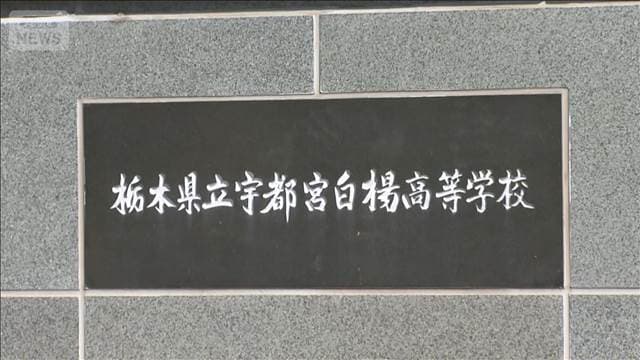 NEWS
栃木県立宇都宮白楊高等学校